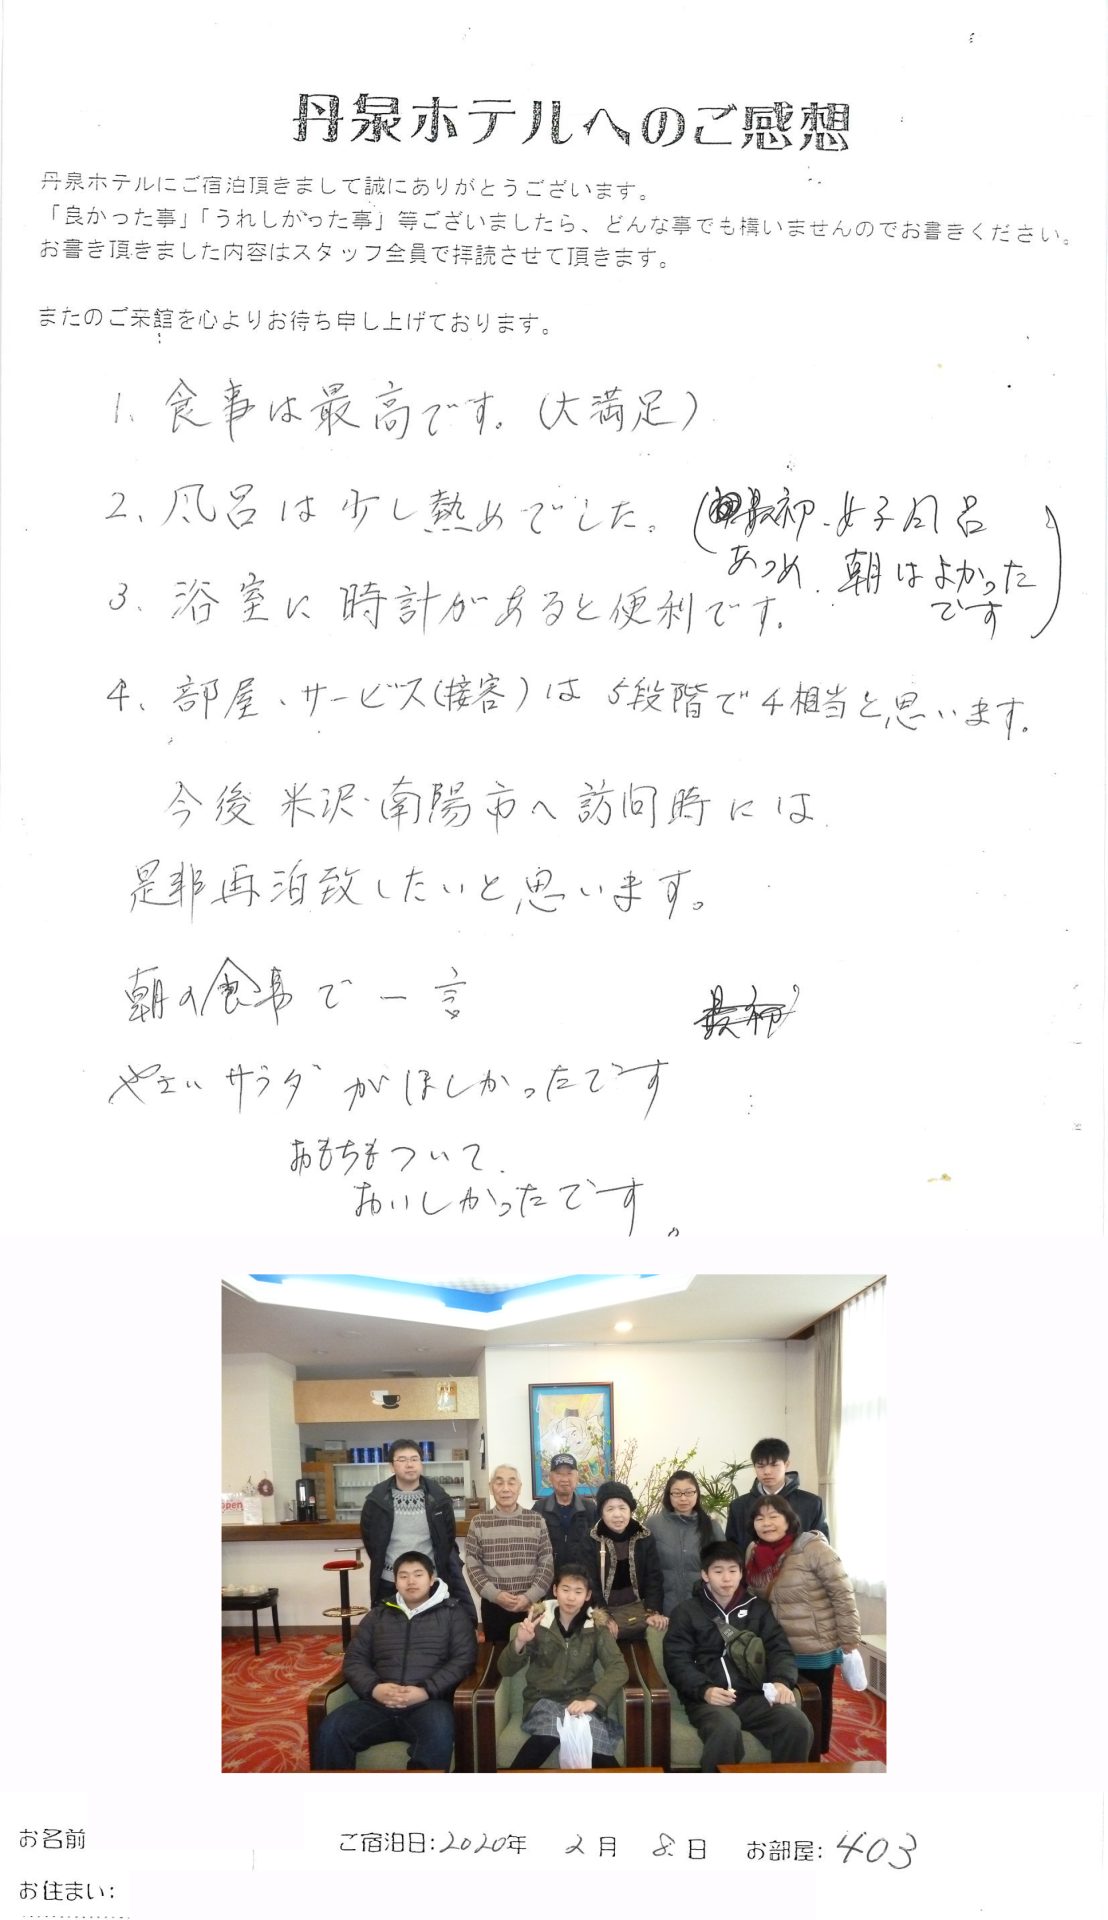 丹泉ホテルへのご感想
丹泉ホテルにご宿泊頂きまして誠にありがとうございます。
「良かった事」「うれしかった事」等ございましたら、どんな事でも構いませんのでお書きください。
お書き頂きました内容はスタッフ全員で拝読させて頂きます。
またのご来館を心よりお待ち申し上げております。
1. 食事は最高です。(大満足)
2、風呂は少し熱めでした。
(最初、女子風呂
あつめ、朝はよかった
です)
3、浴室に時計があると便利です。
4、部屋、サービス(接客)は5段階で4相当と思います。
今後 米沢・南陽市へ訪問時には
是非再泊致したいと思います。
朝の食事で一言
やさいサラダがほしかったです
おもちもついて、
おいしかったです。
open
お名前
ご宿泊日:2020年 2月 8日 お部屋:403
お住まい: